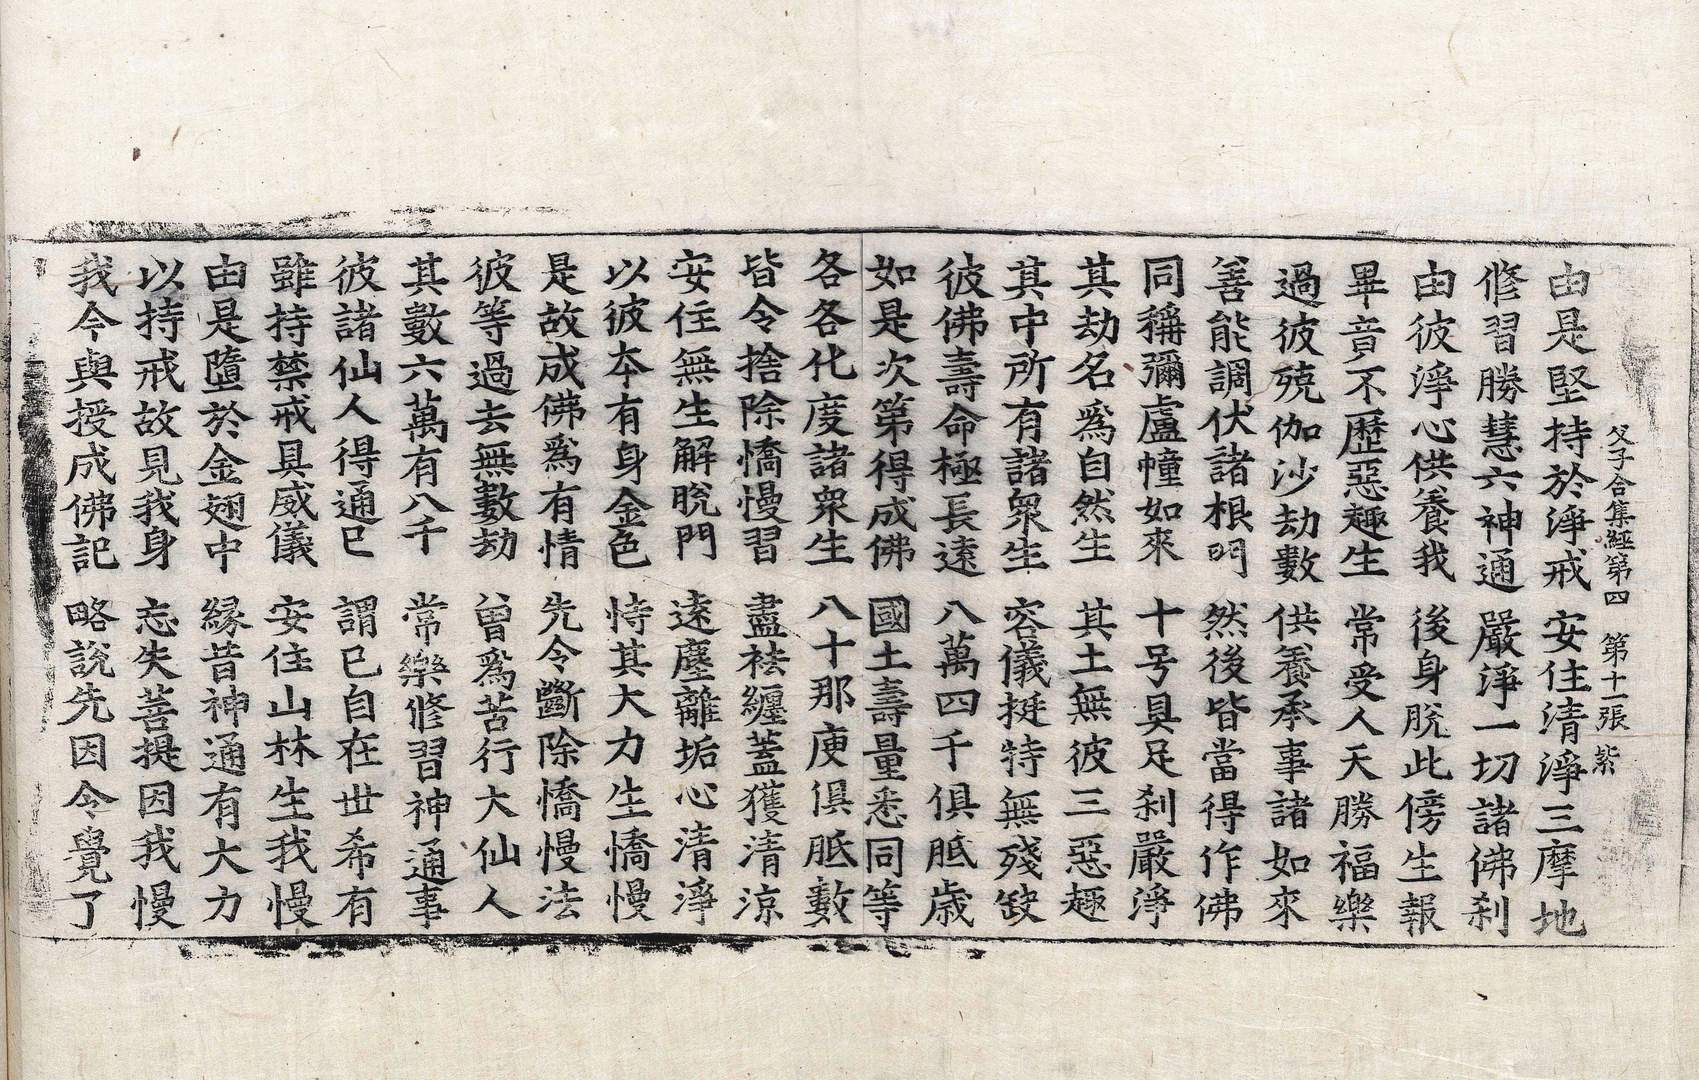 父子合集經第四　第十一張　紫
由是堅持於淨戒　安住清淨三摩地
修習勝慧六神通　嚴淨一切諸佛刹
由彼淨心供養我　後身脫此傍生報
畢音不歷惡趣生　常受人天勝福樂
過彼殑伽沙劫數　供養承事諸如來
善能調伏諸根門　然後皆當得作佛
同稱彌盧幢如來　十号具足刹嚴淨
其劫名爲自然生　其土無彼三惡趣
其中所有諸衆生　容儀挺特無殘缺
彼佛壽命極長遠　八萬四千俱胝歲
如是次第得成佛　國土壽量悉同等
各各化度諸衆生　八十那庾俱胝數
皆令捨除憍慢習　盡祛纏蓋獲清涼
安住無生解脫門　遠塵離垢心清淨
以彼本有身金色　恃其大力生憍慢
是故成佛爲有情　先令斷除憍慢法
彼等過去無數劫　曾爲苦行大仙人
其數六萬有八千　常樂修習神通事
彼諸仙人得通已　謂已自在世希有
雖持禁戒具威儀　安住山林生我慢
由是墮於金翅中　緣昔神通有大力
以持戒故見我身　忘失菩提因我慢
我今與授成佛記　略說先因令覺了